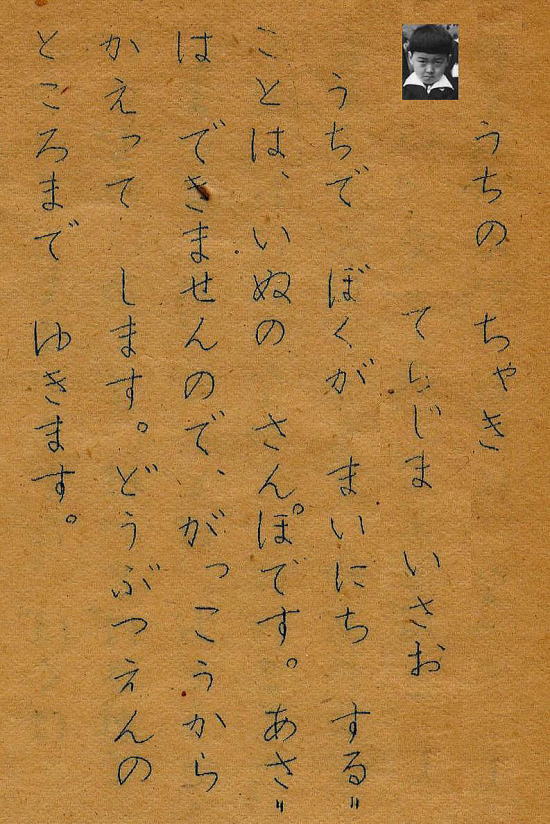 うちの ちゃき
てらじま いさお
うちで ぼくが まいにち する〃
ことは、いぬの さんぽです。あさ〃
は できませんので、がっこうから
かえって します。どうぶつえんの
ところまで ゆきます。